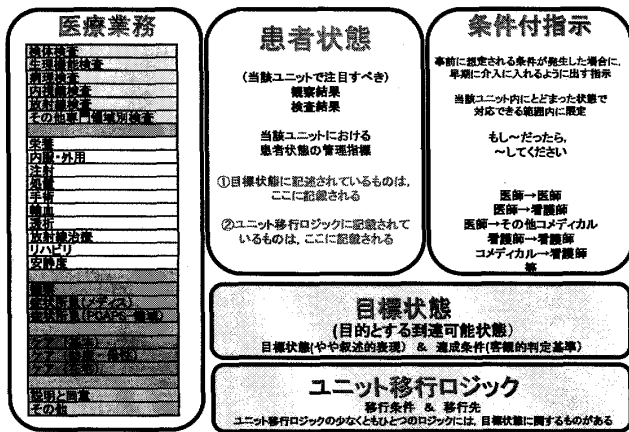 医療業務
検体検査
生理機能検査
病理検査
内視鏡検査
放射線検査
その他専門領域別検査
栄養
内服・外用
注射
処置
手術
輸血
透析
放射線治療
リハビリ
安静度
観察
症状所見(メディス)
症状所見(PCAPS-領域)
説明と同意
その他
患者状態
(当該ユニットで注目すべき)
観察結果
検査結果
当該ユニットにおける
患者状態の管理指標
①目標状態に記述されているものは、
ここに記載される
②ユニット移行ロジックに記載されて
いるものは、ここに記載される
条件付指示
事前に想定される条件が発生した場合に、
早期に介入に入れるように出す指示
当該ユニット内にとどまった状態で
対応できる範囲内に限定
もし～だったら、
～してください
医師→医師
医師→看護師
医師→その他コメディカル
看護師→看護師
コメディカル→看護師
等
目標状態
(目的とする到達可能状態)
目標状態(やや叙述的表現) & 達成条件(客観的判定基準)
ユニット移行ロジック
移行条件 & 移行先
ユニット移行ロジックの少なくともひとつのロジックには、目標状態に関するものがある